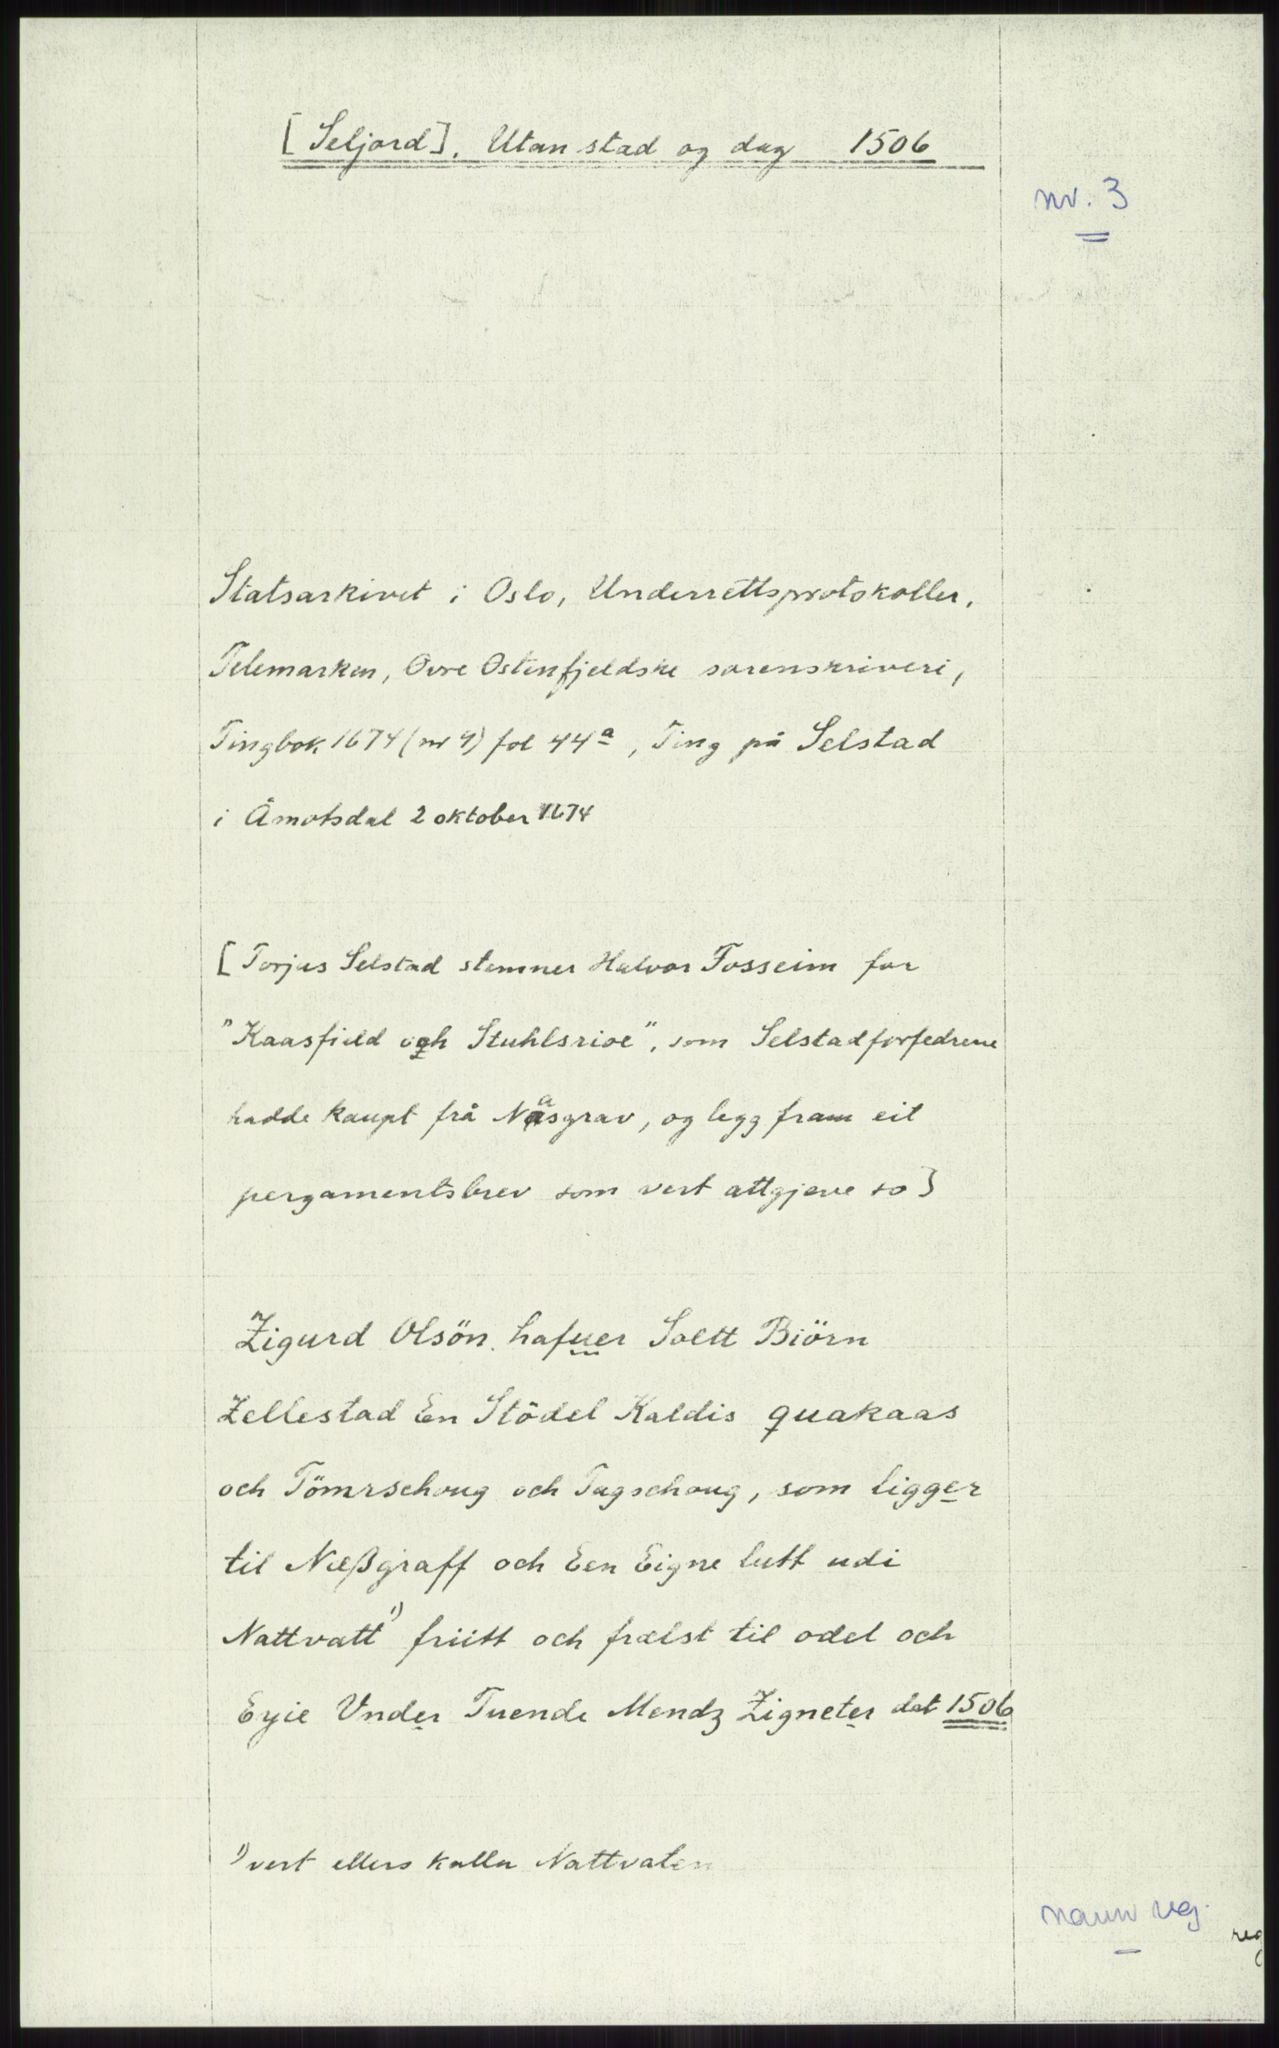 [Seljord]. Utan stad og dag 1506
nr. 3
Statsarkivet i Oslo, Underrettsprotokoller,
Telemarken, Øvre Østenfjeldske sorenskriveri,
Tingbok 1674 (nr 4) fol 44a, Ting på Selstad
i Åmotsdal 2 oktober 1674
[Torjus Selstad stemner Halvor Fosseim for
"Kaasfield och Stuhlsrioe", som Selstadforfedrene
hadde kaupt frå Nåsgrav, og legg fram eit
pergamentsbrev som vert attgjeve so]
Zigurd Olsön hafuer Soltt Biörn
Zellestad En Stödel Kaldis quakaas
och Tömrschoug och Tagschoug, som ligger
til Næßgraff och Een Eigne lutt udi
Nattvatt 1) friitt och frælst til odel och
Eyie Vnder Tuende Mendz Zigneter dat 1506
1) vert ellers kalla Nattvaten
navn reg.
reg